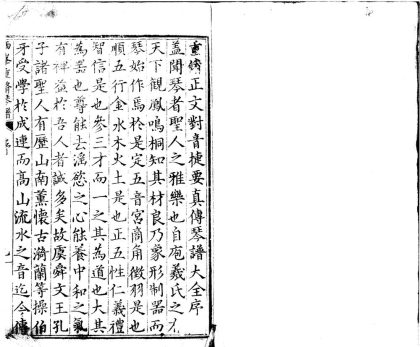 重修正文對音捷要真傳琴譜大全序
蓋聞琴者聖人之雅樂也自庖羲氏之
天下觀鳳鳴桐知其材良乃象形制器而
琴始作焉於是定五音宮商角徵羽是也
順五行金水木火土是也正五性仁義禮
智信是也參三才而一之其為道也大其
為器也尊能去滛慾之心能養中和之氣
有裨益於吾人者誠多矣故虞舜文王孔
子諸聖人有歷山南薰懷古漪蘭等操伯
牙受學於成連而高山流水之音迄今傳